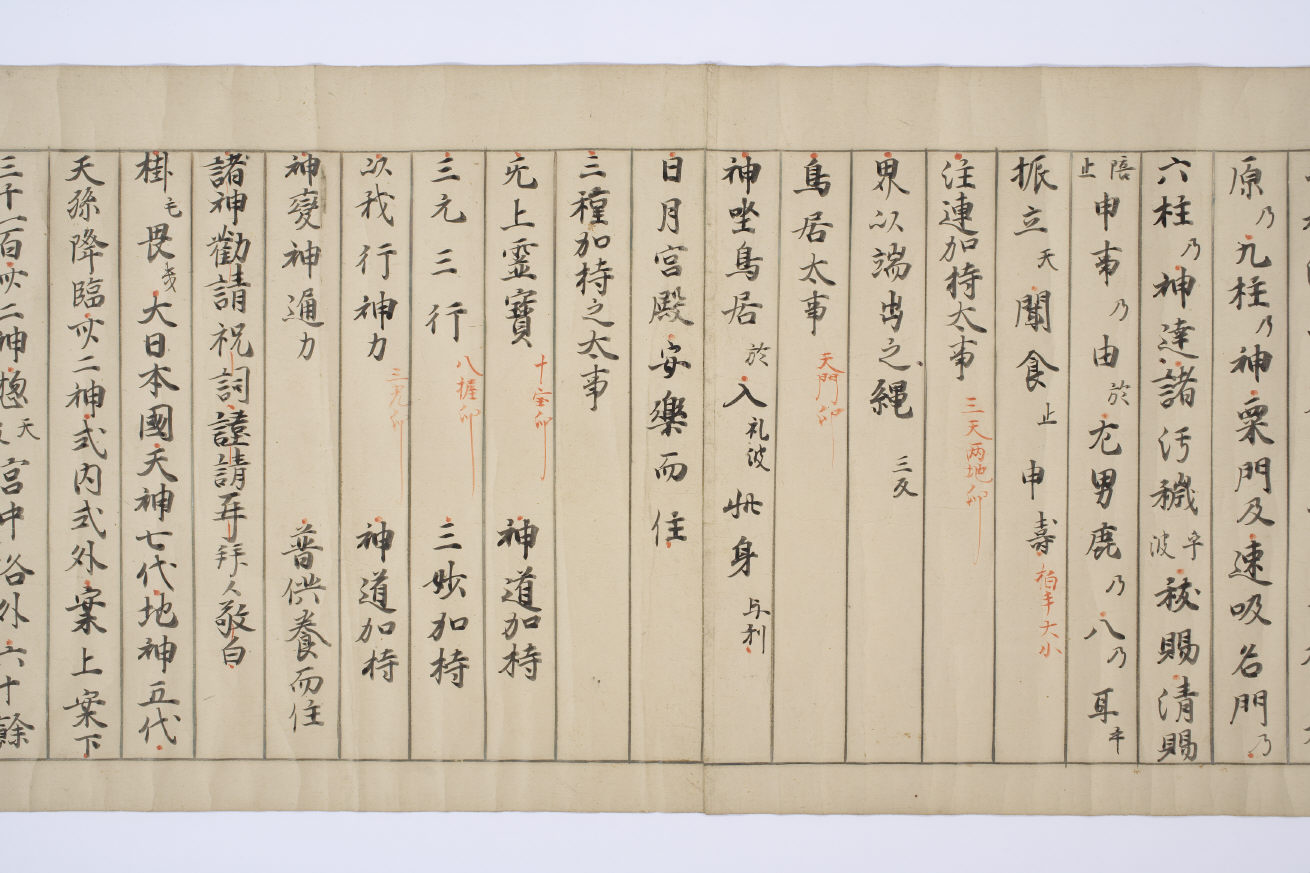 原乃九柱乃神粟門及速吸名門乃
六柱乃神達諸汚穢乎波祓賜清賜
陪止申事乃由於尤男鹿乃八乃耳乎
振立天聞食止申寿拍手大小
注連加持太事三天両地印
界以端出之縄三反
鳥居太事天門印
神坐鳥居於入礼波此身与利
日月宮殿安樂而住
三種加持之太事
无上霊寶十宝印神道加持
三元三行八握印三妙加持
以我行神力三光印神道加持
神變神通力普供養而住
諸神勸請祝詞謹請再拝人敬白
掛毛畏幾大日本國天神七代地神五代
天孫降臨卅二神式内式外案上案下
三千一百卅二神惣天宮中洛外六十餘